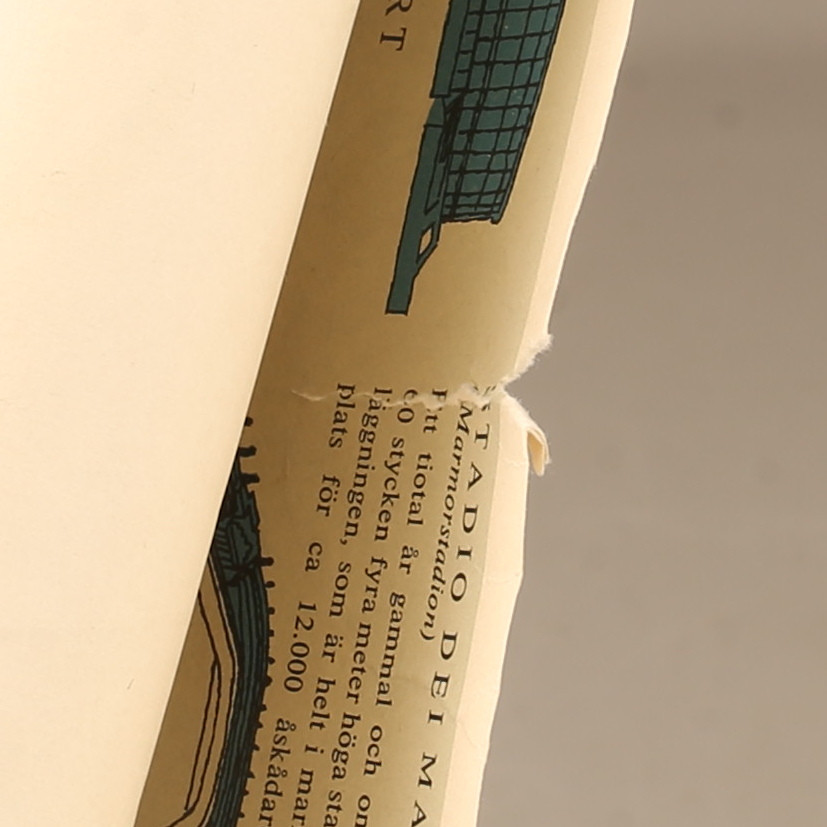 RT
STADIO DEI MA
(Marmorstadion)
Ett tiotal år gammal och om
60 stycken fyra meter höga sta
läggningen, som är helt i mar
plats för ca 12.000 åskådar